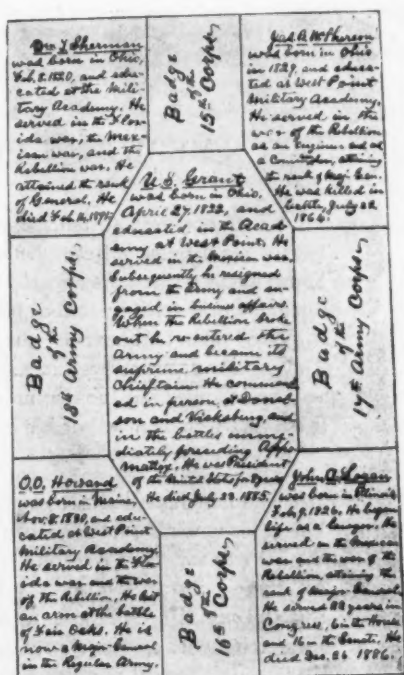 Wm. T. Sherman
was born in Ohio,
Feb. 8. 1820, and edu-
cated at the Mili-
tary Academy. He
served in the Flor-
ida war, the Mex-
ican war, and the
Rebellion war. He
attained the rank
of General. He
died Feb. 14, 1891.
Badge
of the
15th Corps,
Jas. B. McPherson
was born in Ohio
in 1829, and educa-
ted at West Point
Military Academy.
He served in the
war of the Rebellion
as an Engineer and as
a Commander, attaining
the rank of Maj. Gen.
He was killed in
battle, July 22,
1864.
Badge
of the
18th Army Corps,
U. S. Grant
was born in Ohio,
April 27, 1822, and
educated in the Acad-
emy at West Point. He
served in the Mexican war.
Subsequently he resigned
from the Army and en-
gaged in business affairs.
When the Rebellion broke
out he re-entered the
Army and became its
supreme military
Chieftain. He command-
ed in person at Donel-
son and Vicksburg, and
in the battles imme-
diately preceding Appo-
mattox. He was President
of the United States for 8 years.
He died July 23. 1885.
Badge
of the
17th Army Corps,
O. O. Howard
was born in Maine,
Nov. 8. 1830, and edu-
cated at West Point
Military Academy.
He served in the Flo-
rida war and the war
of the Rebellion. He lost
an arm at the battle
of Fair Oaks. He is
now a Major-General
in the Regular Army.
Badge
of the
16th Corps,
John A. Logan
was born in Illinois
Feb. 9. 1826. He began
life as a Lawyer. He
served in the Mexican
war and the war of the
Rebellion, attaining the
rank of Major-General.
He served 22 years in
Congress, 6 in the House
and 16 in the Senate. He
died Dec. 26 1886.